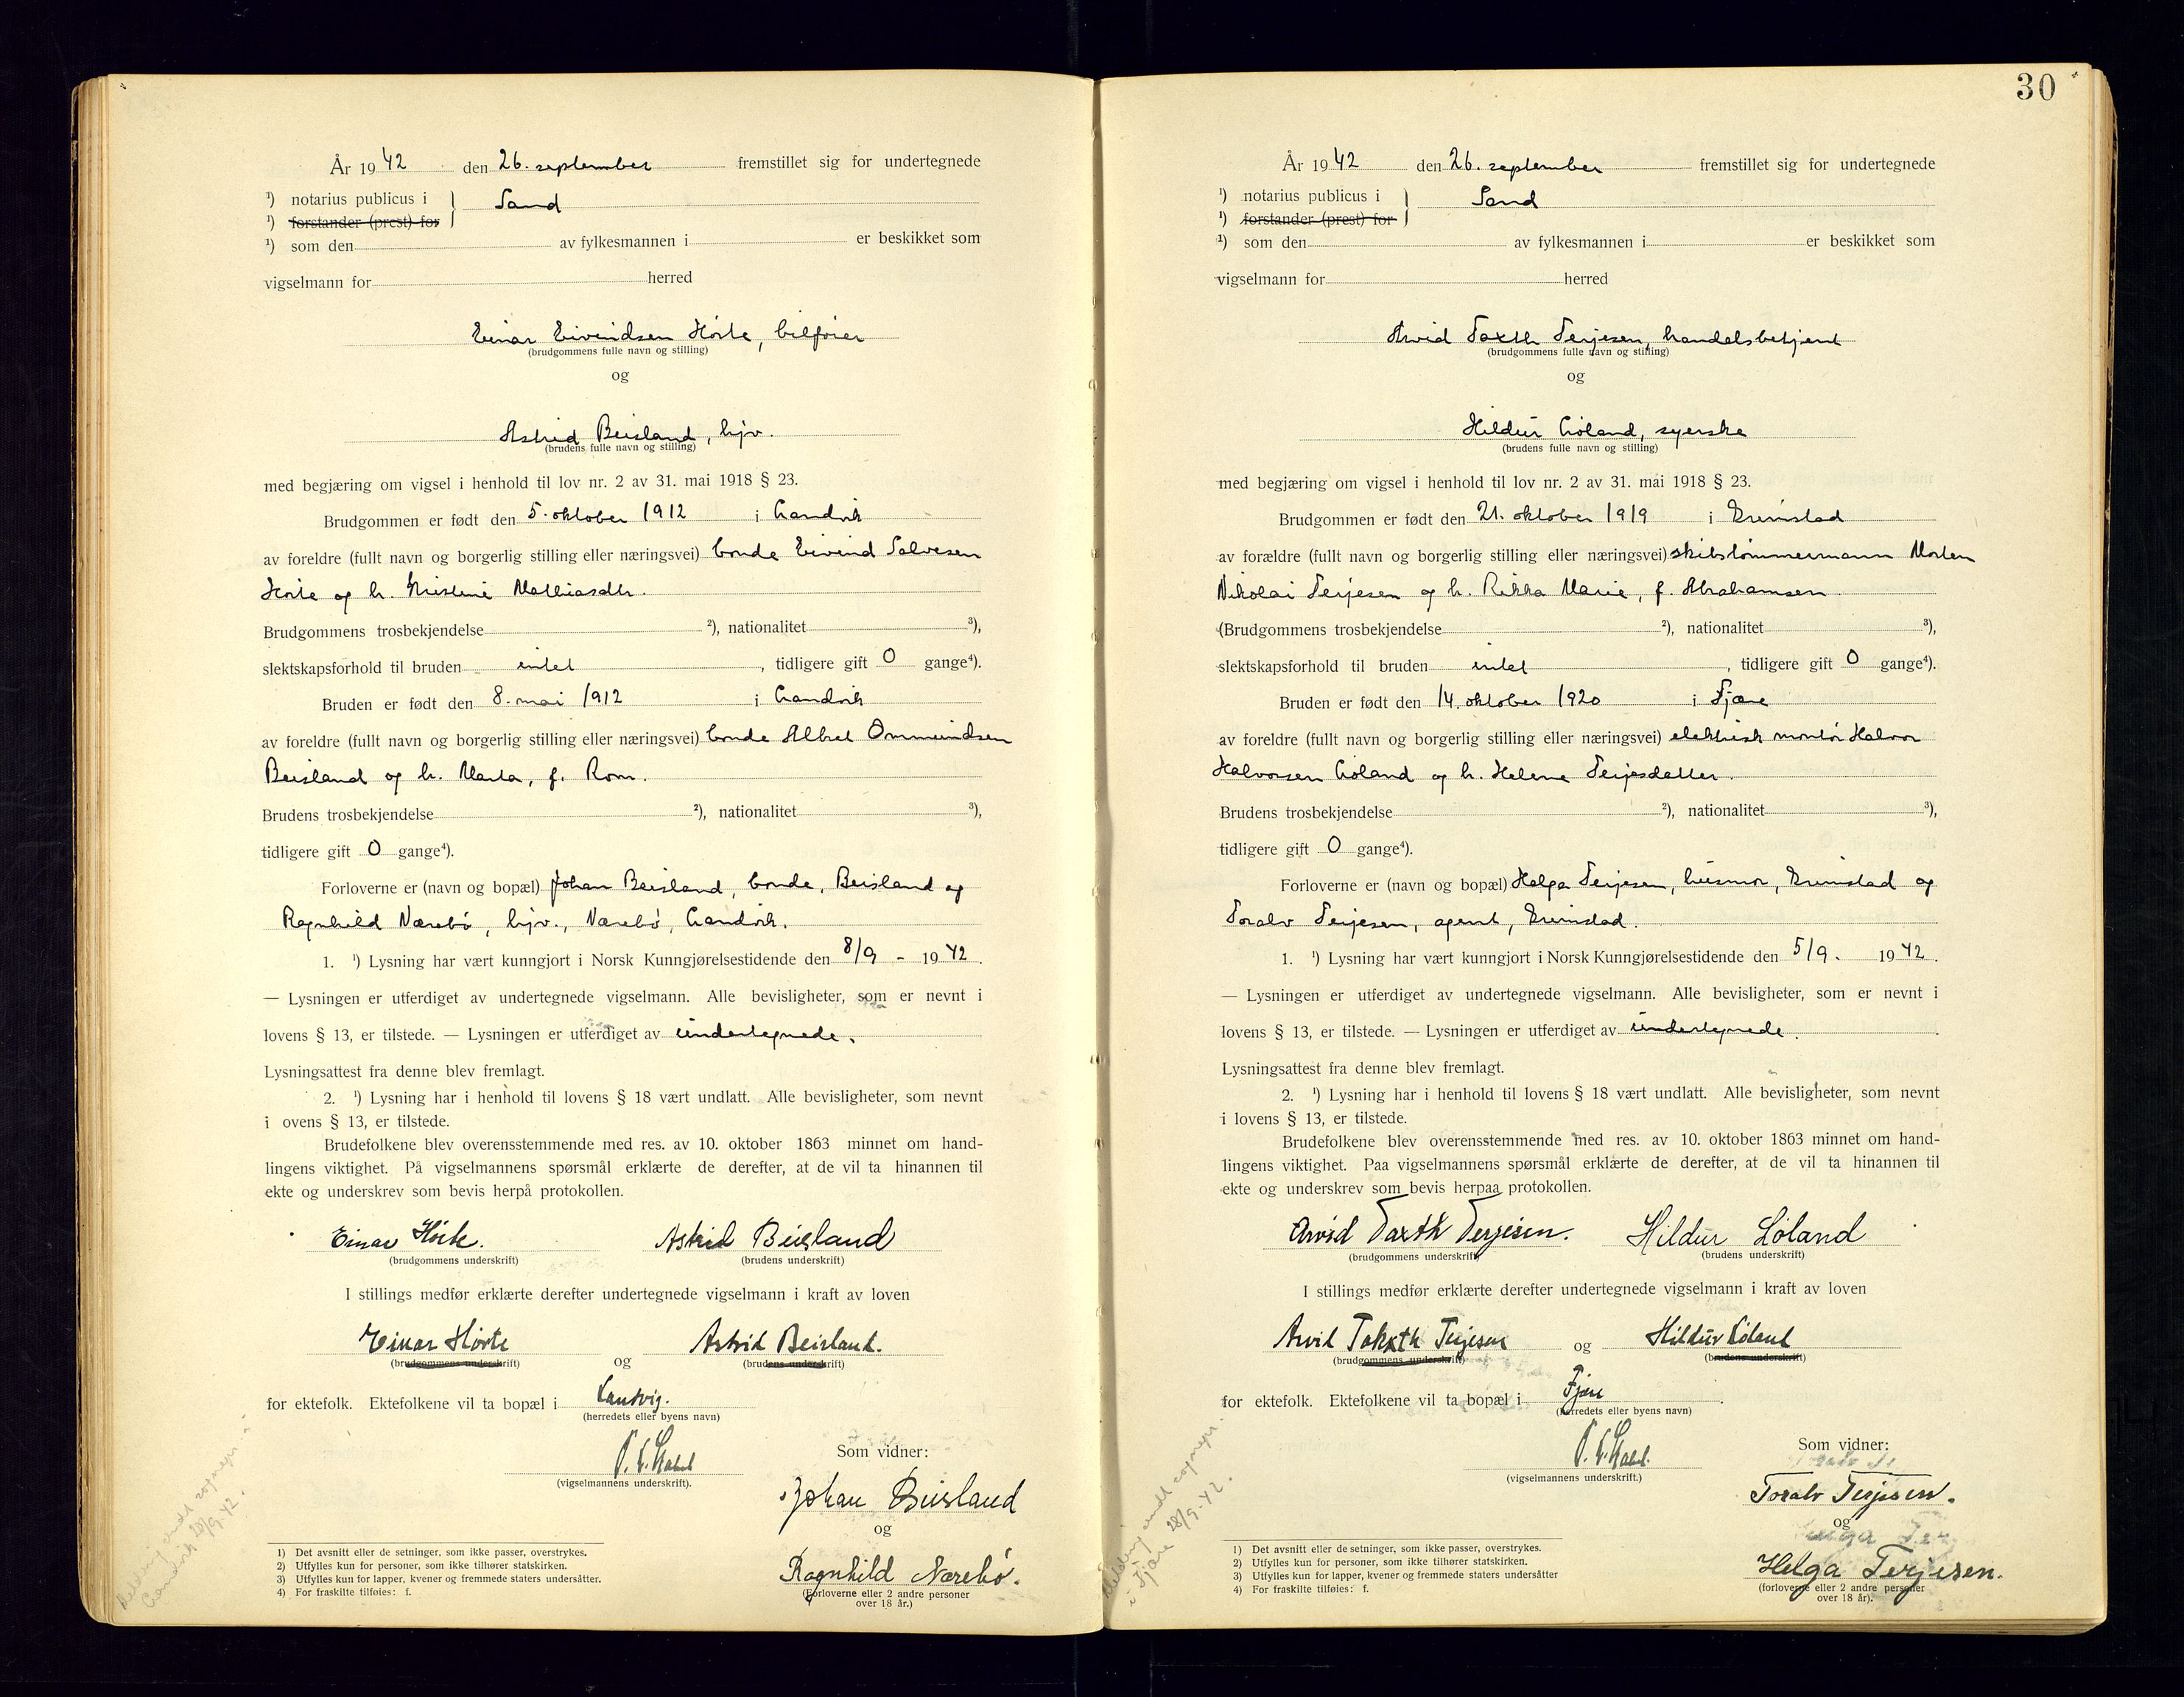 År 1942 den 26. september fremstillet sig for undertegnede
¹) notarius publicus i Sand
¹) forstander (prest) for
¹) som den av fylkesmannen i er beskikket som
vigselmann for herred
Einar Eivindsen Hörte, bilförer
(brudgommens fulle navn og stilling)
og
Astrid Beisland, hjv.
(brudens fulle navn og stilling)
med begjæring om vigsel i henhold til lov nr. 2 av 31. mai 1918 § 23.
Brudgommen er født den 5. oktober 1912 i Landvik
av foreldre (fullt navn og borgerlig stilling eller næringsvei) bonde Eivind Salvesen
Hörte og h. Kristine Mathiasdtr.
Brudgommens trosbekjendelse ²), nationalitet ³),
slektskapsforhold til bruden intet, tidligere gift 0 gange⁴).
Bruden er født den 8. mai 1912 i Landvik
av foreldre (fullt navn og borgerlig stilling eller næringsvei) bonde Albret Ommundsen
Beisland og h. Marta, f. Rom.
Brudens trosbekjendelse ²), nationalitet ³),
tidligere gift 0 gange⁴).
Forloverne er (navn og bopæl) Johan Beisland, bonde, Beisland og
Ragnhild Nærebö, hjv., Nærebö, Landvik.
1. ¹) Lysning har vært kunngjort i Norsk Kunngjørelsestidende den 8/9 - 1942.
— Lysningen er utferdiget av undertegnede vigselmann. Alle bevisligheter, som er nevnt i
lovens § 13, er tilstede. — Lysningen er utferdiget av undertegnede.
Lysningsattest fra denne blev fremlagt.
2. ¹) Lysning har i henhold til lovens § 18 vært undlatt. Alle bevisligheter, som nevnt
i ovens § 13, er tilstede.
Brudefolkene blev overensstemmende med res. av 10. oktober 1863 minnet om hand-
lingens viktighet. På vigselmannens spørsmål erklærte de derefter, at de vil ta hinannen til
ekte og underskrev som bevis herpå protokollen.
Einar Hörte. Astrid Beisland
(brudgommens underskrift) (brudens underskrift)
I stillings medfør erklærte derefter undertegnede vigselmann i kraft av loven
Einar Hörte og Astrid Beisland.
(brudgommens underskrift) (brudens underskrift)
for ektefolk. Ektefolkene vil ta bopæl i Landvig.
(herredets eller byens navn)
(vigselmannens underskrift).
Som vidner:
Johan Beisland
og
Ragnhild Nærebö.
(Forloverne eller 2 andre personer
over 18 år.)
1) Det avsnitt eller de setninger, som ikke passer, overstrykes.
2) Utfylles kun for personer, som ikke tilhører statskirken.
3) Utfylles kun for lapper, kvener og fremmede staters undersåtter.
4) For fraskilte tilføies: f.
Melding sendt sognepr. i
Landvik 28/9-42.
30
År 1942 den 26. september fremstillet sig for undertegnede
¹) notarius publicus i Sand
¹) forstander (prest) for
¹) som den av fylkesmannen i er beskikket som
vigselmann for herred
Arvid Taxth Terjesen, handelsbetjent
(brudgommens fulle navn og stilling)
og
Hildur Löland, syerske
(brudens fulle navn og stilling)
med begjæring om vigsel i henhold til lov nr. 2 av 31. mai 1918 § 23.
Brudgommen er født den 21. oktober 1919 i Grimstad
av forældre (fullt navn og borgerlig stilling eller næringsvei) skibstömmermann Morten
Nikolai Terjesen og h. Rikka Marie, f. Abrahamsen
(Brudgommens trosbekjendelse ²), nationalitet ³),
slektskapsforhold til bruden intet, tidligere gift 0 gange⁴).
Bruden er født den 14. oktober 1920 i Fjære
av foreldre (fullt navn og borgerlig stilling eller næringsvei) elektrisk montör Halvor
Halvorsen Löland og h. Helene Terjesdatter.
Brudens trosbekjendelse ²), nationalitet ³),
tidligere gift 0 gange⁴).
Forloverne er (navn og bopæl) Helga Terjesen, husmor, Grimstad og
Toralv Terjesen, agent, Grimstad.
1. ¹) Lysning har vært kunngjort i Norsk Kunngjørelsestidende den 5/9. 1942.
— Lysningen er utferdiget av undertegnede vigselmann. Alle bevisligheter, som er nevnt i
lovens § 13, er tilstede. — Lysningen er utferdiget av undertegnede.
Lysningsattest fra denne blev fremlagt.
2. ¹) Lysning har i henhold til lovens § 18 vært undlatt. Alle bevisligheter, som nevnt
i lovens § 13, er tilstede.
Brudefolkene blev overensstemmende med res. av 10. oktober 1863 minnet om hand-
lingens viktighet. Paa vigselmannens spørsmål erklærte de derefter, at de vil ta hinannen til
ekte og underskrev som bevis herpaa protokollen.
Arvid Taxth Terjesen. Hildur Löland
(brudgommens underskrift) (brudens underskrift)
I stillings medfør erklærte derefter undertegnede vigselmann i kraft av loven
Arvid Takxth Terjesen og Hildur Löland
(brudgommens underskrift) (brudens underskrift)
for ektefolk. Ektefolkene vil ta bopæl i Fjære
(herredets eller byens navn)
(vigselmannens underskrift.)
Som vidner:
Toralv Terjesen.
og
Helga Terjesen.
(forloverne eller 2 andre personer
over 18 år).
1) Det avsnitt eller de setninger, som ikke passer, overstrykes.
2) Utfylles kun for personer, som ikke tilhører statskirken.
3) Utfylles kun for lapper, kvener og fremmede staters undersåtter
4) For fraskilte tilføies: f.
Melding sendt sognepr.
i Fjære 28/9-42.